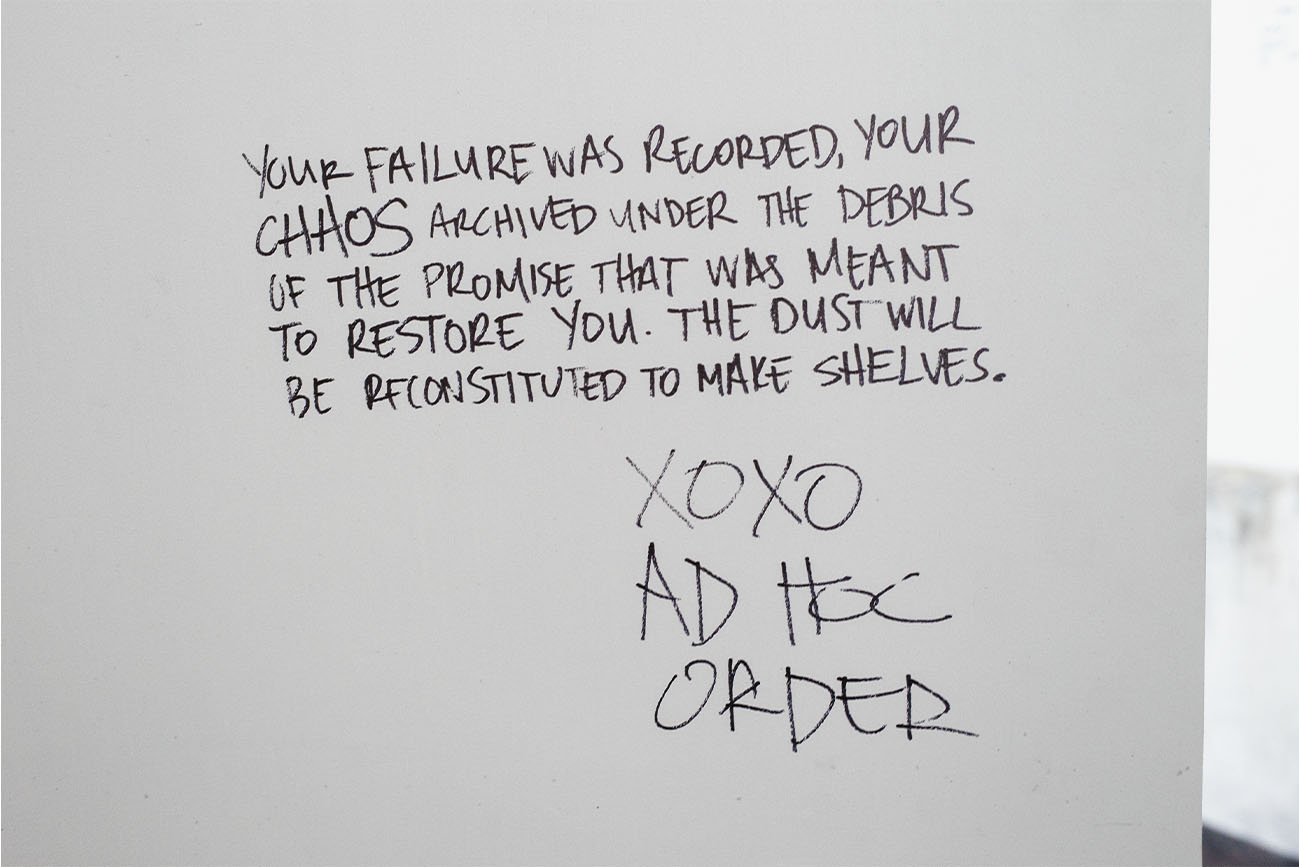 YOUR FAILURE WAS RECORDED, YOUR
CHAOS ARCHIVED UNDER THE DEBRIS
OF THE PROMISE THAT WAS MEANT
TO RESTORE YOU. THE DUST WILL
BE RECONSTITUTED TO MAKE SHELVES.
XOXO
AD HOC
ORDER